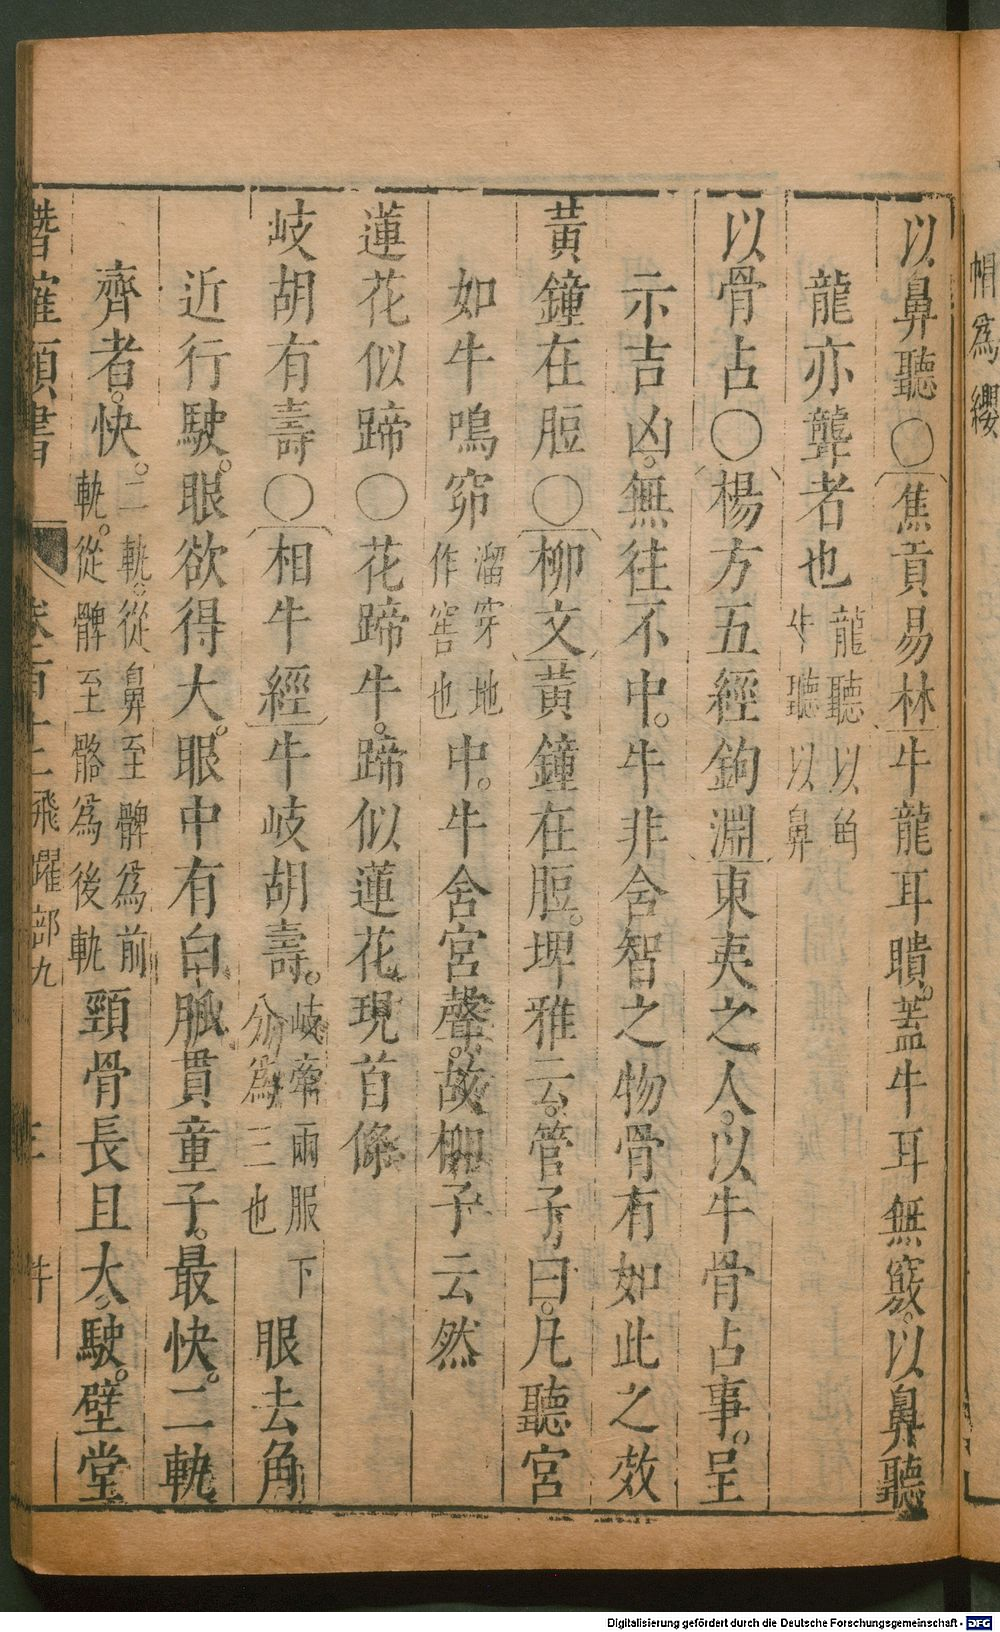 帽為纓
以鼻聽〇焦貢易林牛龍耳聵。蓋牛耳無竅。以鼻聽
龍亦聾者也龍聽以角牛聽以鼻
以骨占〇楊方五經鉤淵東夷之人。以牛骨占事。呈
示吉凶。無往不中。牛非含智之物骨有如此之效
黃鐘在脰〇柳文黃鐘在脰。埤雅云。管子曰。凡聽宮
如牛鳴窌溜穿地作窖也中。牛舍宮聲。故柳子云然
蓮花似蹄〇花蹄牛。蹄似蓮花現首條
岐胡有壽〇相牛經牛岐胡壽。岐牽兩服下分為三也眼去角
近行駛。眼欲得大。眼中有白脈貫童子。最快。二軌
齊者。快。二軌。從鼻至髀為前軌。從髀至骼為後軌頸骨長且大。駛。壁堂
潛確類書 卷百十 飛躍部九 三 件
Digitalisierung gefördert durch die Deutsche Forschungsgemeinschaft - DFG